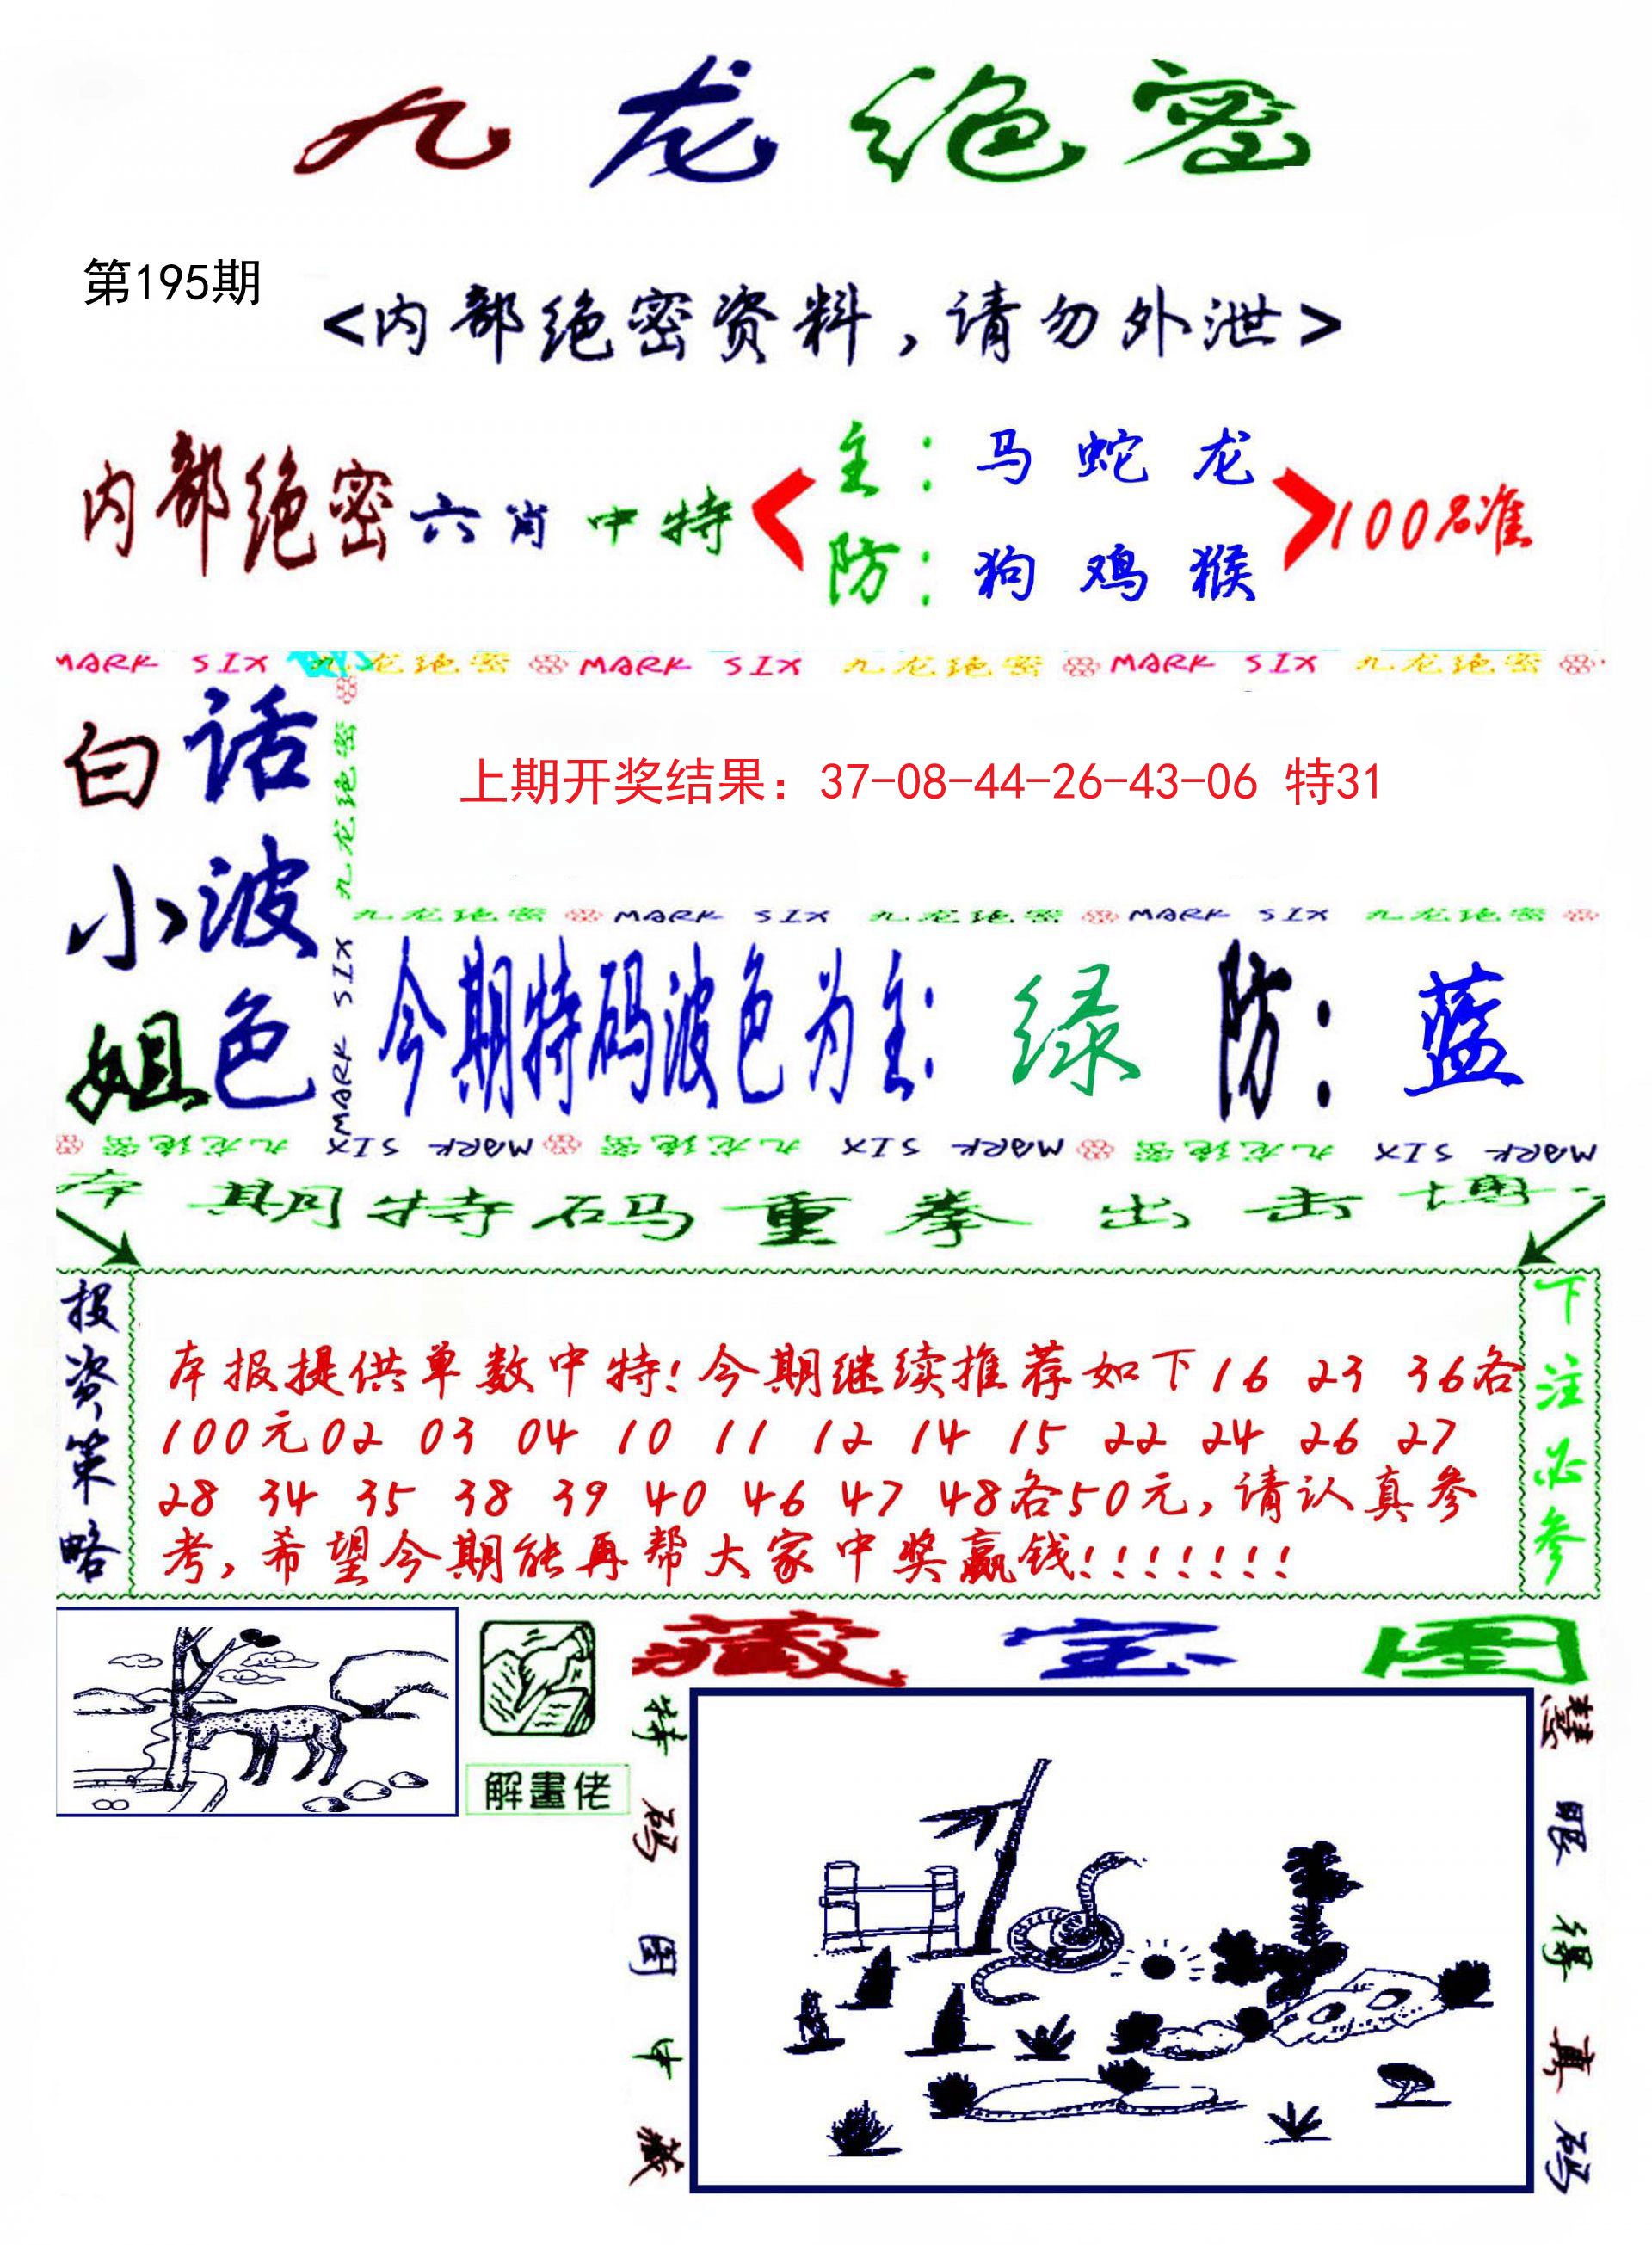 九龙绝密
第195期
<内部绝密资料,请勿外泄>
内部绝密六肖中特
主:马蛇龙
防:狗鸡猴
100%准
MARK SIX 九龙绝密 MARK SIX 九龙绝密 MARK SIX 九龙绝密
白小姐
话波色
九龙绝密
MARK SIX
上期开奖结果：37-08-44-26-43-06 特31
九龙绝密 MARK SIX 九龙绝密 MARK SIX 九龙绝密
今期特码波色为主:绿 防:蓝
九龙绝密 MARK SIX 九龙绝密 MARK SIX 九龙绝密 MARK SIX
本期特码重拳出击博
投资策略
本报提供单数中特!今期继续推荐如下16 23 36各
100元02 03 04 10 11 12 14 15 22 24 26 27
28 34 35 38 39 40 46 47 48各50元,请认真参
考,希望今期能再帮大家中奖赢钱!!!!!!!
下注必参
解畫佬
藏宝图
特码图中藏
慧眼得真码